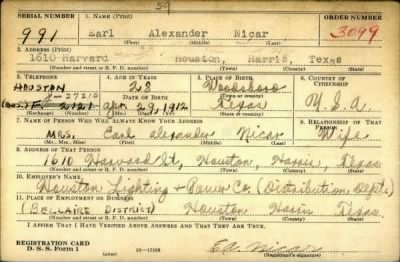 59
SERIAL NUMBER 1. NAME (Print) ORDER NUMBER
991 Earl Alexander Nicar 3099
(First) (Middle) (Last)
2. ADDRESS (Print)
1610 Harvard Houston, Harris, Texas
(Number and street or R. F. D. number) (Town) (County) (State)
3. TELEPHONE 4. AGE IN YEARS 5. PLACE OF BIRTH 6. COUNTRY OF CITIZENSHIP
HOUSTON 28 Woodsboro
27210 DATE OF BIRTH (Town or county)
2121 Jan 29, 1912 Texas U.S.A.
(Exchange) (Number) (Mo.) (Day) (Yr.) (State or country)
7. NAME OF PERSON WHO WILL ALWAYS KNOW YOUR ADDRESS 8. RELATIONSHIP OF THAT PERSON
MRS. Earl Alexander Nicar Wife
(Mr., Mrs., Miss) (First) (Middle) (Last)
9. ADDRESS OF THAT PERSON
1610 Harvard St, Houston, Harris, Texas
(Number and street or R. F. D. number) (Town) (County) (State)
10. EMPLOYER'S NAME
Houston Lighting & Power Co. (Distribution Dept.)
11. PLACE OF EMPLOYMENT OR BUSINESS
(BELLAIRE DISTRICT) Houston Harris Texas
(Number and street or R. F. D. number) (Town) (County) (State)
I AFFIRM THAT I HAVE VERIFIED ABOVE ANSWERS AND THAT THEY ARE TRUE.
REGISTRATION CARD
D. S. S. Form 1 16—17105 E.A. Nicar
(Registrant's signature)